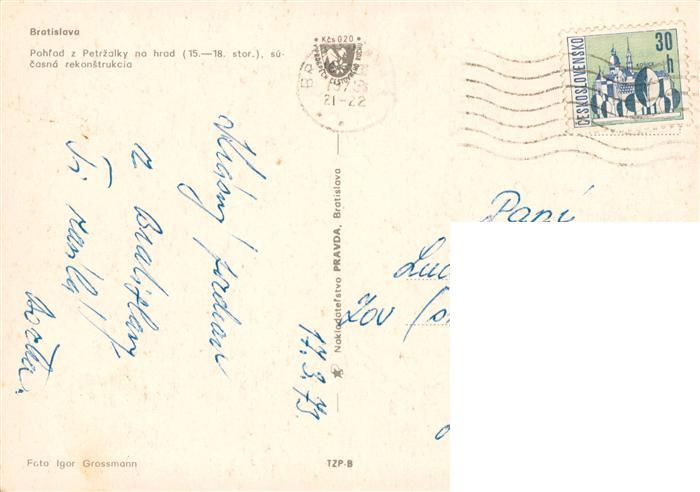 Bratislava
Pohľad z Petržalky na hrad (15.—18. stor.), sú-
časná rekonštrukcia
Kčs 0,20
21-22
ČESKOSLOVENSKO
30 h
KOŠICE
Krásny pozdrav
z Bratislavy
Ti zasiela
17.3.73.
Nakladateľstvo PRAVDA, Bratislava
Paní
Foto Igor Grossmann
TZP-B